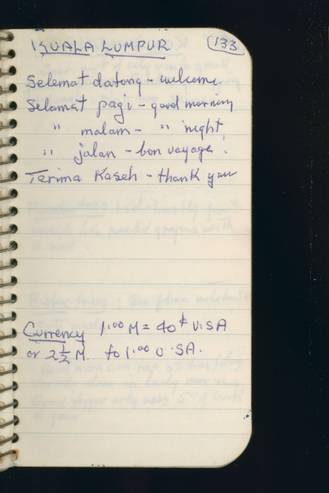 KUALA LUMPUR 133
Selemat datong - welcome
Selamat pagi - good morning
" malam - " night
" jalan - bon voyage!
Terima Kaseh - thank you
Currency 1.00 M = 40¢ USA
or 2½ M. to 1.00 USA.